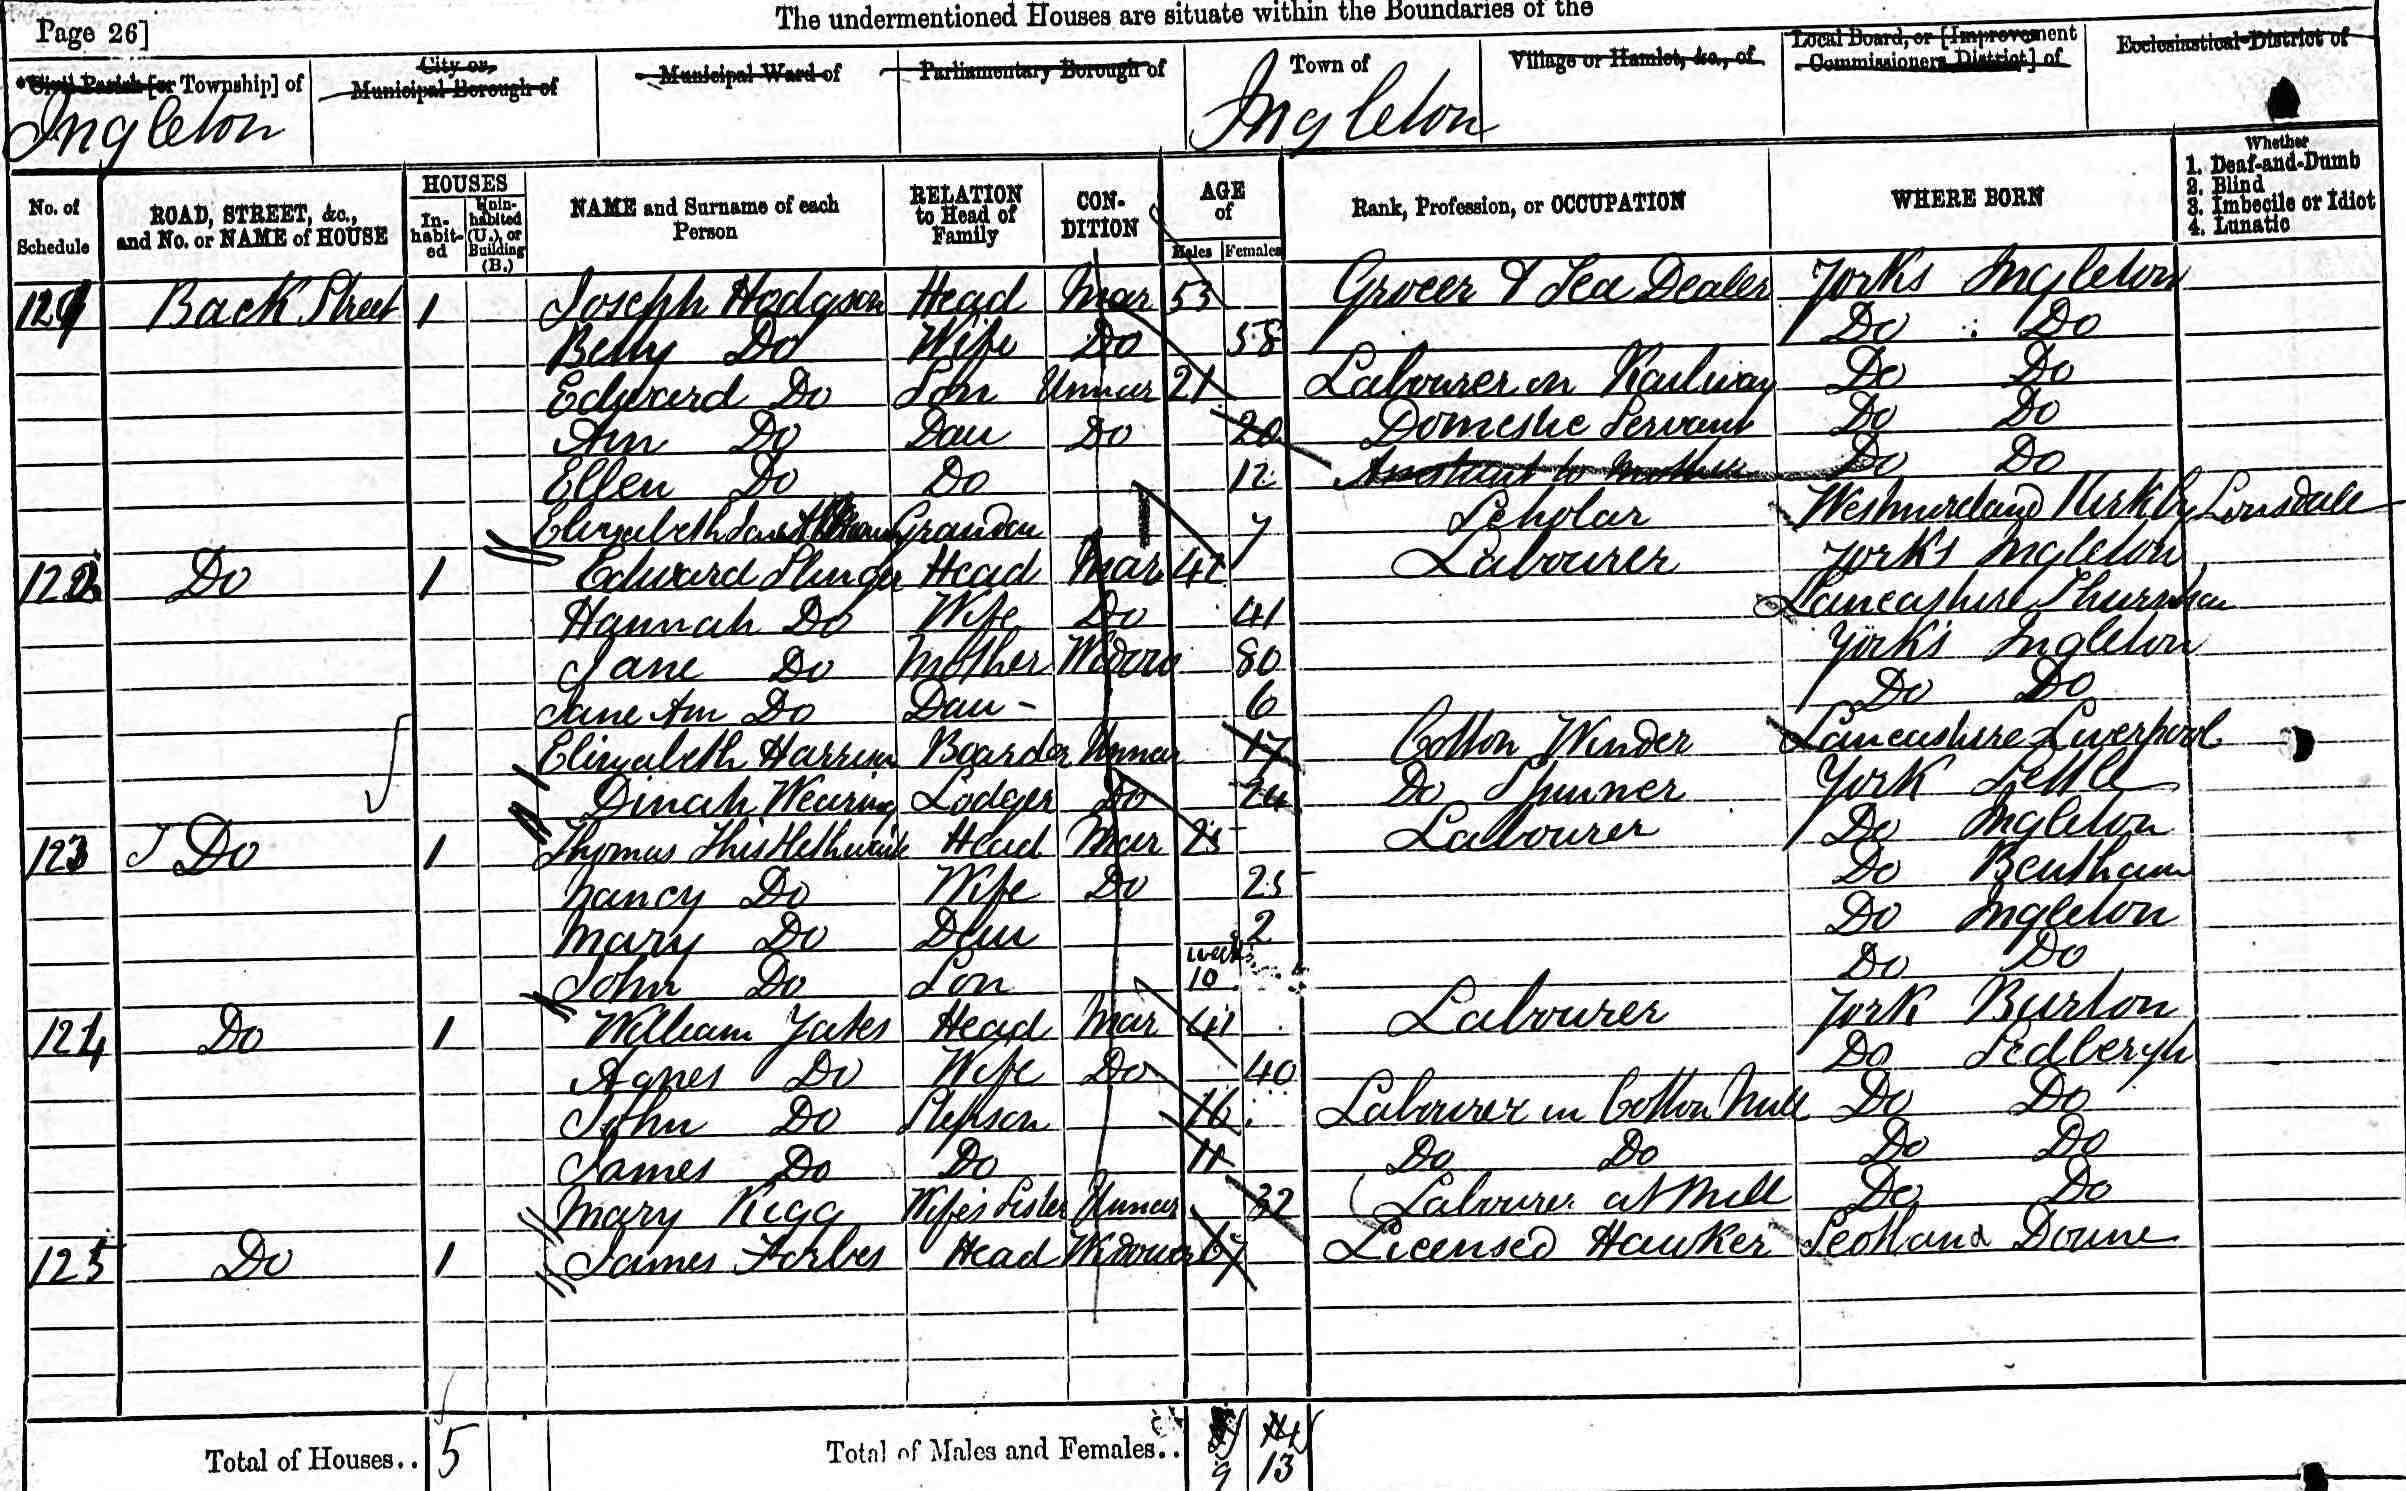 Page 26]
The undermentioned Houses are situate within the Boundaries of the
Civil Parish [or Township] of
City or Municipal Borough of
Municipal Ward of
Parliamentary Borough of
Town of
Village or Hamlet, &c., of
Local Board, or [Improvement Commissioners District] of
Ecclesiastical District of
Ingleton Ingleton
No. of Schedule
ROAD, STREET, &c., and No. or NAME of HOUSE
HOUSES
In-habit-ed
Unin-habited (U.), or Building (B.)
NAME and Surname of each Person
RELATION to Head of Family
CON-DITION
AGE of
Males Females
Rank, Profession, or OCCUPATION
WHERE BORN
Whether
1. Deaf-and-Dumb
2. Blind
3. Imbecile or Idiot
4. Lunatic
121 Back Street 1 Joseph Hodgson Head Mar 53 Grocer & Tea Dealer Yorks Ingleton
Betty Do Wife Do 58 Do Do
Edward Do Son Unmar 21 Labourer on Railway Do Do
Ann Do Dau Do 20 Domestic Servant Do Do
Ellen Do Do 12 Assistant to Mother Do Do
Elizabeth Jane Grandau 7 Scholar Westmoreland Kirkby Lonsdale
122 Do 1 Edward Slinger Head Mar 42 Labourer Yorks Ingleton
Hannah Do Wife Do 41 Lancashire
Jane Do Mother Widow 80 Yorks Ingleton
Jane Ann Do Dau - 6 Do Do
Elizabeth Harrison Boarder Unmar 17 Cotton Winder Lancashire Liverpool
Dinah Wearing Lodger Do 24 Do Spinner York Settle
123 Do 1 Thomas Thistlethwaite Head Mar 25 Labourer Do Ingleton
Nancy Do Wife Do 25 Do Bentham
Mary Do Dau 2 Do Ingleton
John Do Son weeks 10 Do Do
124 Do 1 William Yates Head Mar 41 Labourer York Burton
Agnes Do Wife Do 40 Do Sedbergh
John Do Stepson 16 Labourer in Cotton Mill Do Do
James Do Do 11 Do Do Do Do
Mary Kigg Wife's Sister Unmar 32 Labourer at Mill Do Do
125 Do 1 James Forbes Head Widower 67 Licensed Hawker Scotland Doune
Total of Houses.. 5 Total of Males and Females.. 9 13